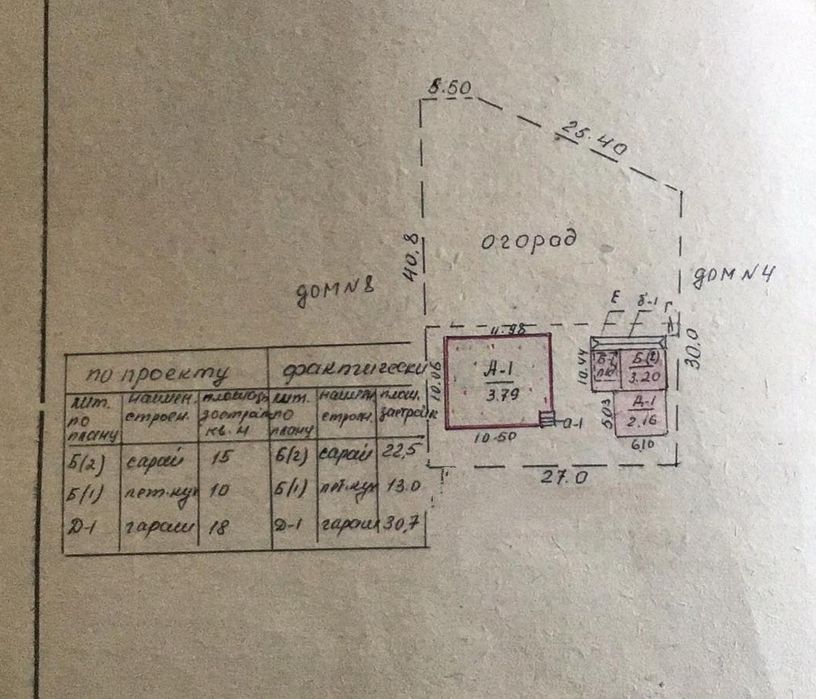 5.50
25.40
ОГОРАД
40,8
ДОМ №8
ДОМ №4
Е
Б-1
Г
30,0
10.06
А-1
3.79
10.50
а-1
10.44
Б(2)
3.20
5,03
Д-1
2.16
6,10
27.0
по проекту фактически
лит. по плану наимен. строен. площадь застрайк кв. м лит. по плану наимен строен. площ. застройк
Б(2) сарай 15 Б(2) сарай 22,5
Б(1) лет.кух 10 Б(1) лет.кух 13.0
Д-1 гараш 18 Д-1 гараш 30,7